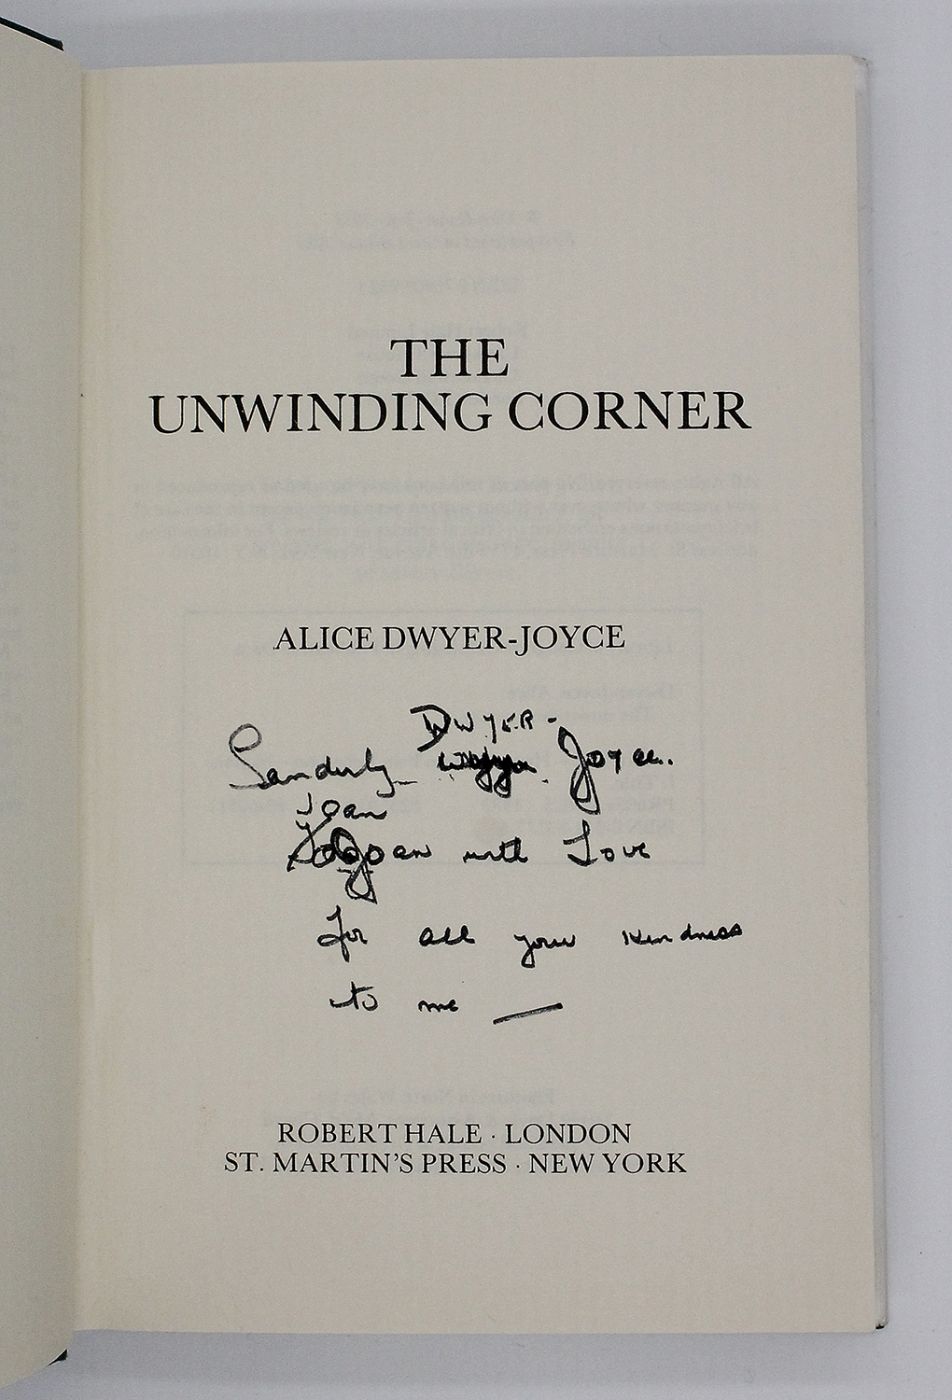 THE
UNWINDING CORNER
ALICE DWYER-JOYCE
DWYER-
Joyce.
Joan
with Love
for all your kindness
to me —
ROBERT HALE · LONDON
ST. MARTIN'S PRESS · NEW YORK